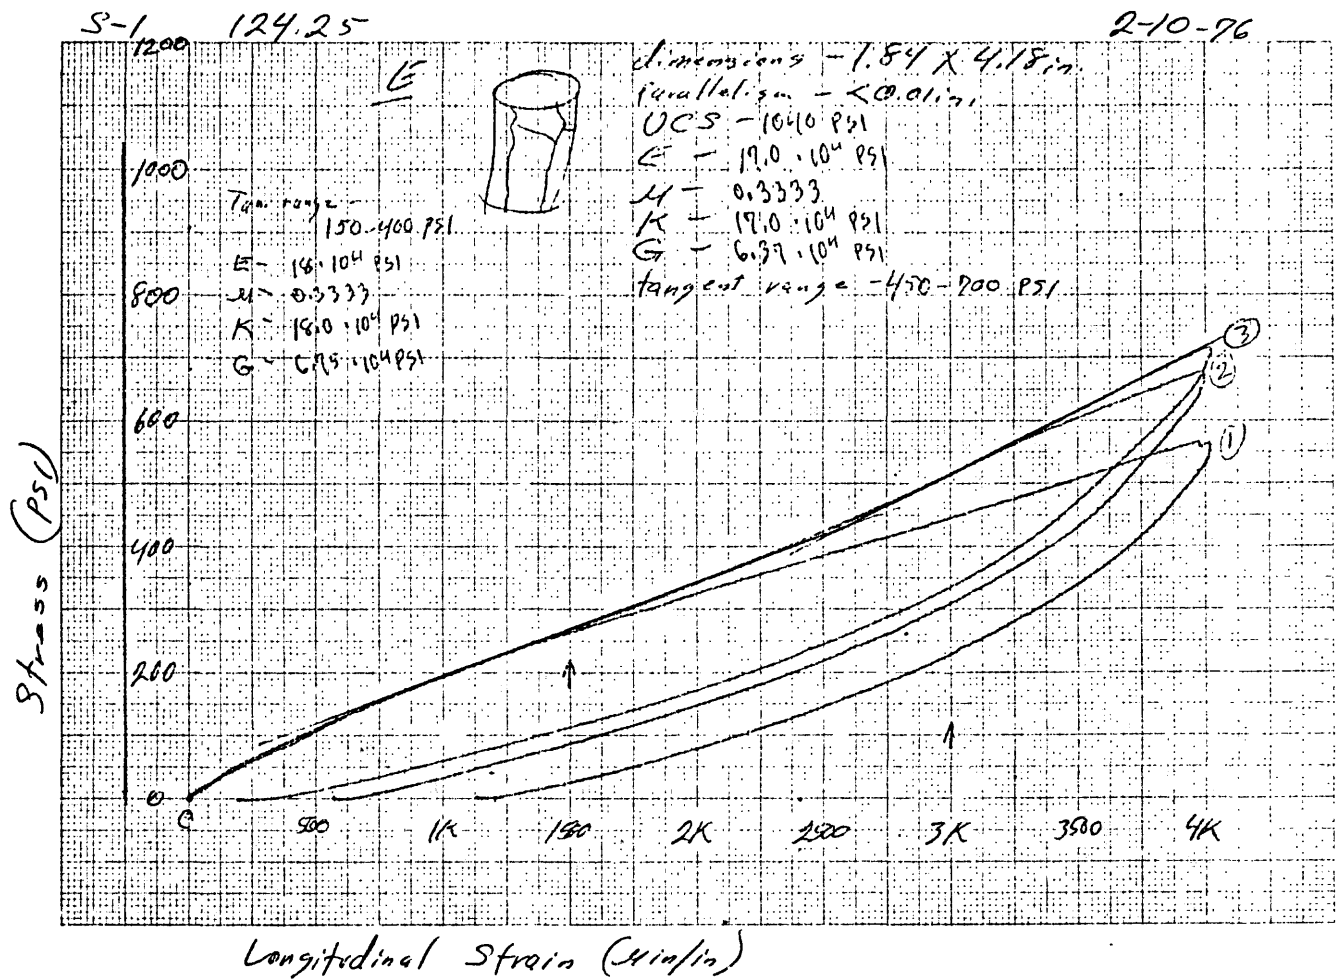 S-1 124.25 2-10-76
E
dimensions - 1.84 X 4.18in.
parallelism - <0.01in.
UCS - 1040 PSI
E - 17.0 · 10⁴ PSI
μ - 0.3333
K - 17.0 · 10⁴ PSI
G - 6.37 · 10⁴ PSI
tangent range - 450-700 PSI
Tan. range -
150-400 PSI
E - 18 · 10⁴ PSI
μ - 0.3333
K - 18.0 · 10⁴ PSI
G - 6.75 · 10⁴ PSI
1200
1000
800
600
400
200
0
Stress (PSI)
③
②
①
0 500 1K 1500 2K 2500 3K 3500 4K
Longitudinal Strain (μin/in)